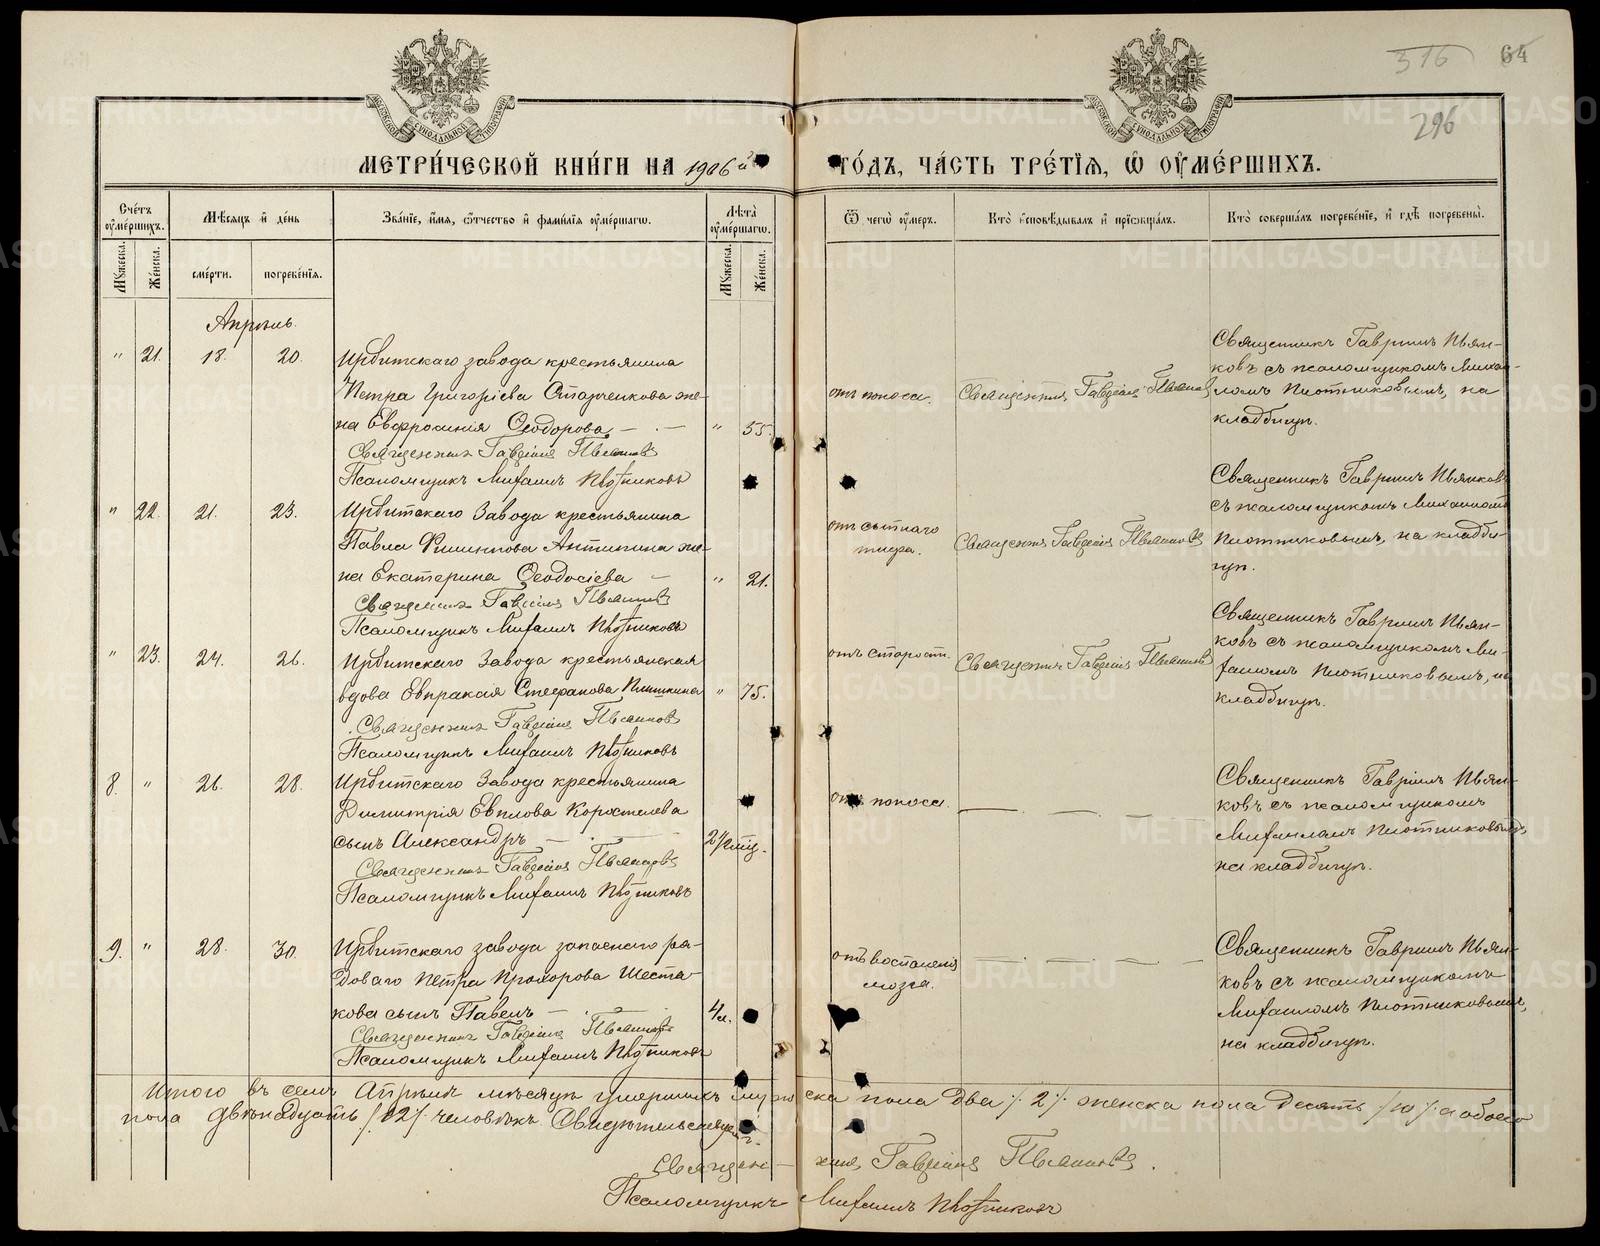 316 64
296
МЕТРИ́ЧЕСКОЙ КНИ́ГИ НА 1906й ГО́ДЪ, ЧА́СТЬ ТРЕ́ТІѦ, Ѡ҆ ОУ҆МЕ́РШИХЪ.
Сче́тъ оу҆ме́ршихъ.
Му́жеска.
Же́нска.
Мѣ́сяцъ и҆ де́нь
сме́рти.
погребе́нїѧ.
Зва́нїе, и҆́мѧ, ѻ҆́тчество и҆ фами́лїѧ оу҆ме́ршагѡ.
Лѣ́та оу҆ме́ршагѡ.
Му́жеска.
Же́нска.
Ѿ чегѡ̀ оу҆́меръ.
Кто̀ и҆сповѣ́дывалъ и҆ прїѡбща́лъ.
Кто̀ соверша́лъ погребе́нїе, и҆ гдѣ̀ погребены̀.
Апрѣль.
" 21. 18. 20.
Ирбитскаго завода крестьянина
Петра Григорiева Старченкова же-
на Евфросинія Ѳеодорова — . —
" 55.
Священникъ Гавріилъ Пьянковъ
Псаломщикъ Михаилъ Плотниковъ
отъ поноса.
Священникъ Гавріилъ Пьянковъ
Священникъ Гавріилъ Пьян-
ковъ съ псаломщикомъ Михаи-
ломъ Плотниковымъ, на
кладбищѣ.
" 22. 21. 23.
Ирбитскаго Завода крестьянина
Павла Филиппова Антипина же-
на Екатерина Ѳеодосіева —
" 21.
Священникъ Гавріилъ Пьянковъ
Псаломщикъ Михаилъ Плотниковъ
отъ сытнаго
тифа.
Священникъ Гавріилъ Пьянковъ
Священникъ Гавріилъ Пьянковъ
съ псаломщикомъ Михаиломъ
Плотниковымъ, на кладби-
щѣ.
" 23. 24. 26.
Ирбитскаго Завода крестьянская
вдова Евпраксія Стефанова
" 75.
Священникъ Гавріилъ Пьянковъ
Псаломщикъ Михаилъ Плотниковъ
отъ старости.
Священникъ Гавріилъ Пьянковъ
Священникъ Гавріилъ Пьян-
ковъ съ псаломщикомъ Ми-
хаиломъ Плотниковымъ, на
кладбищѣ.
8. " 26. 28.
Ирбитскаго Завода крестьянина
Димитрія Евплова Коростелева
сынъ Александръ —
2½ мѣс.
Священникъ Гавріилъ Пьянковъ
Псаломщикъ Михаилъ Плотниковъ
отъ поноса.
Священникъ Гавріилъ Пьян-
ковъ съ псаломщикомъ
Михаиломъ Плотниковымъ,
на кладбищѣ.
9. " 28. 30.
Ирбитскаго завода запаснаго ря-
доваго Петра Прохорова Шеста-
кова сынъ Павелъ —
4 л.
Священникъ Гавріилъ Пьянковъ
Псаломщикъ Михаилъ Плотниковъ
отъ воспаленія
мозга.
Священникъ Гавріилъ Пьян-
ковъ съ псаломщикомъ
Михаиломъ Плотниковымъ,
на кладбищѣ.
Итого въ семъ Апрѣлѣ мѣсяцѣ умершихъ мужеска пола два /2/. женска пола десять /10/. а обоего
пола двѣнадцать /12/. человѣкъ.
Священникъ Гавріилъ Пьянковъ.
Псаломщикъ Михаилъ Плотниковъ
METRIKI.GASO-URAL.RU